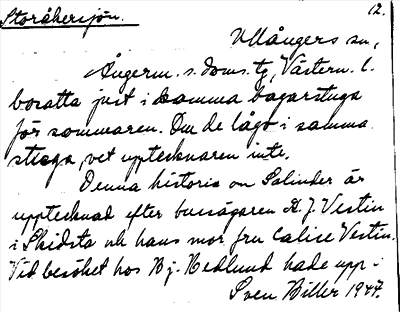 Storåkersjön. 12.
Ullångers sn,
Ångerm. s. doms. tg, Västern. l.
bosatta just i samma bagarstuga
för sommaren. Om de lågo i samma
stuga, vet upptecknaren inte.
Denna historia om Salinder är
upptecknad efter bussägaren A. J. Vestin
i Skidsta och hans mor fru Calise Vestin.
Vid besöket hos Bj. Hedlund hade upp-
Sven Biller 1947.